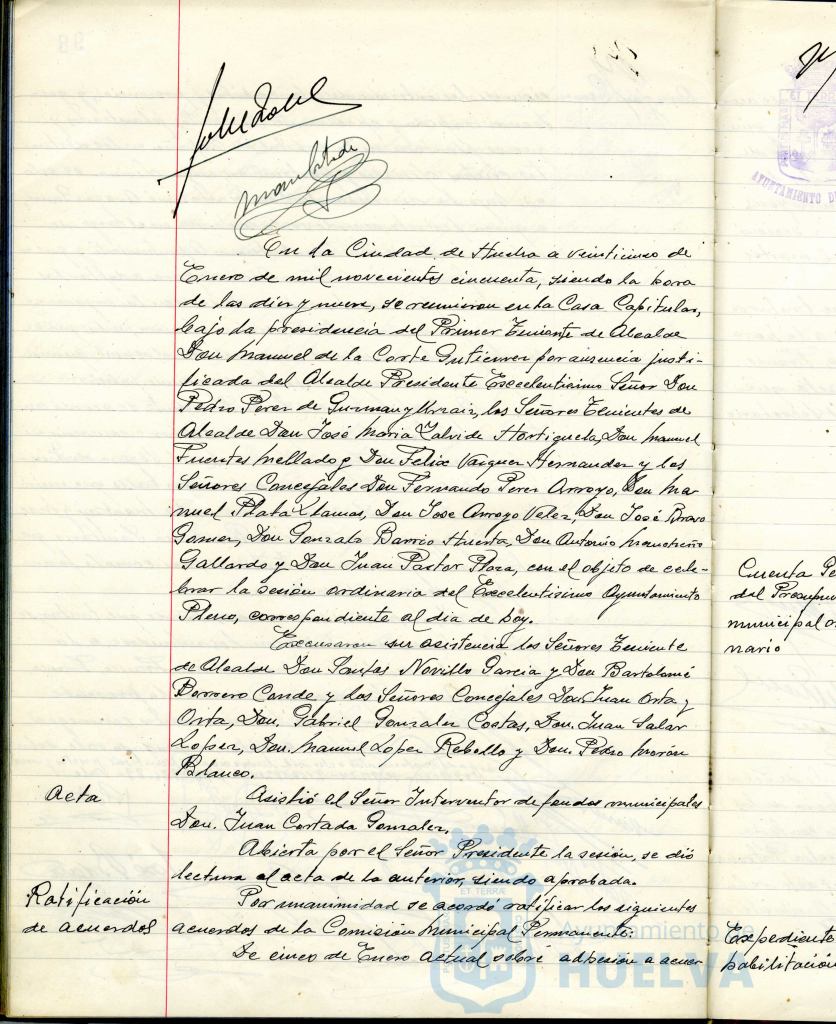 En la Ciudad de Huelva a veinticinco de
Enero de mil novecientos cincuenta, siendo la hora
de las diez y nueve, se reunieron en la Casa Capitular,
bajo la presidencia del Primer Teniente de Alcalde
Don Manuel de la Corte Gutierrez por ausencia justi-
ficada del Alcalde Presidente Excelentisimo Señor Don
Pedro Perez de Guzman y Urzaiz, los Señores Tenientes de
Alcalde Don José Maria Zalvide Hortiguela, Don Manuel
Fuentes Mellado y Don Felix Vazquez Hernandez y los
Señores Concejales Don Fernando Perez Arroyo, Don Ma-
nuel Plata Llamas, Don Jose Arroyo Velez, Don José Bravo
Gomez, Don Gonzalo Barrio Huerta, Don Antonio
Gallardo y Don Juan Pastor Plaza, con el objeto de cele-
brar la sesión ordinaria del Excelentisimo Ayuntamiento
Pleno, correspondiente al dia de hoy.
Excusaron su asistencia los Señores Teniente
de Alcalde Don Santos Novillo Garcia y Don Bartolomé
Borrero Conde y los Señores Concejales Don Juan Orta y
Orta, Don Gabriel Gonzalez Costas, Don Juan Salas
Lopez, Don Manuel Lopez Rebollo y Don Pedro Morón
Blanco.
Acta
Asistió el Señor Interventor de fondos municipales
Don Juan Cortada Gonzalez.
Abierta por el Señor Presidente la sesión, se dió
lectura al acta de la anterior, siendo aprobada.
Ratificación
de acuerdos
Por unanimidad se acordó ratificar los siguientes
acuerdos de la Comisión Municipal Permanente:
De cinco de Enero actual sobre adhesión a acuer
AYUNTAMIENTO D
Cuenta Ge
del Presupue
municipal o
nario
Expediente
habilitación
Ayuntamiento de
HUELVA